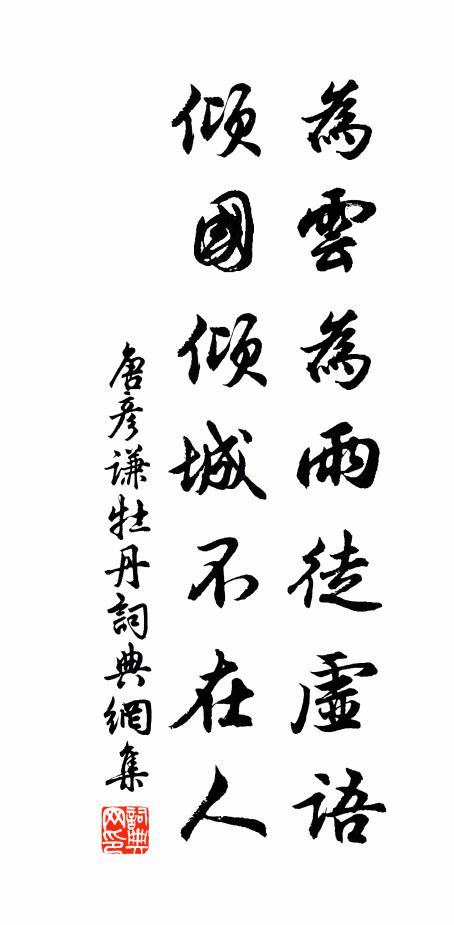 為雲為雨徒虛語
傾國傾城不在人
唐彥謙牡丹詞典網集
詞典
网印